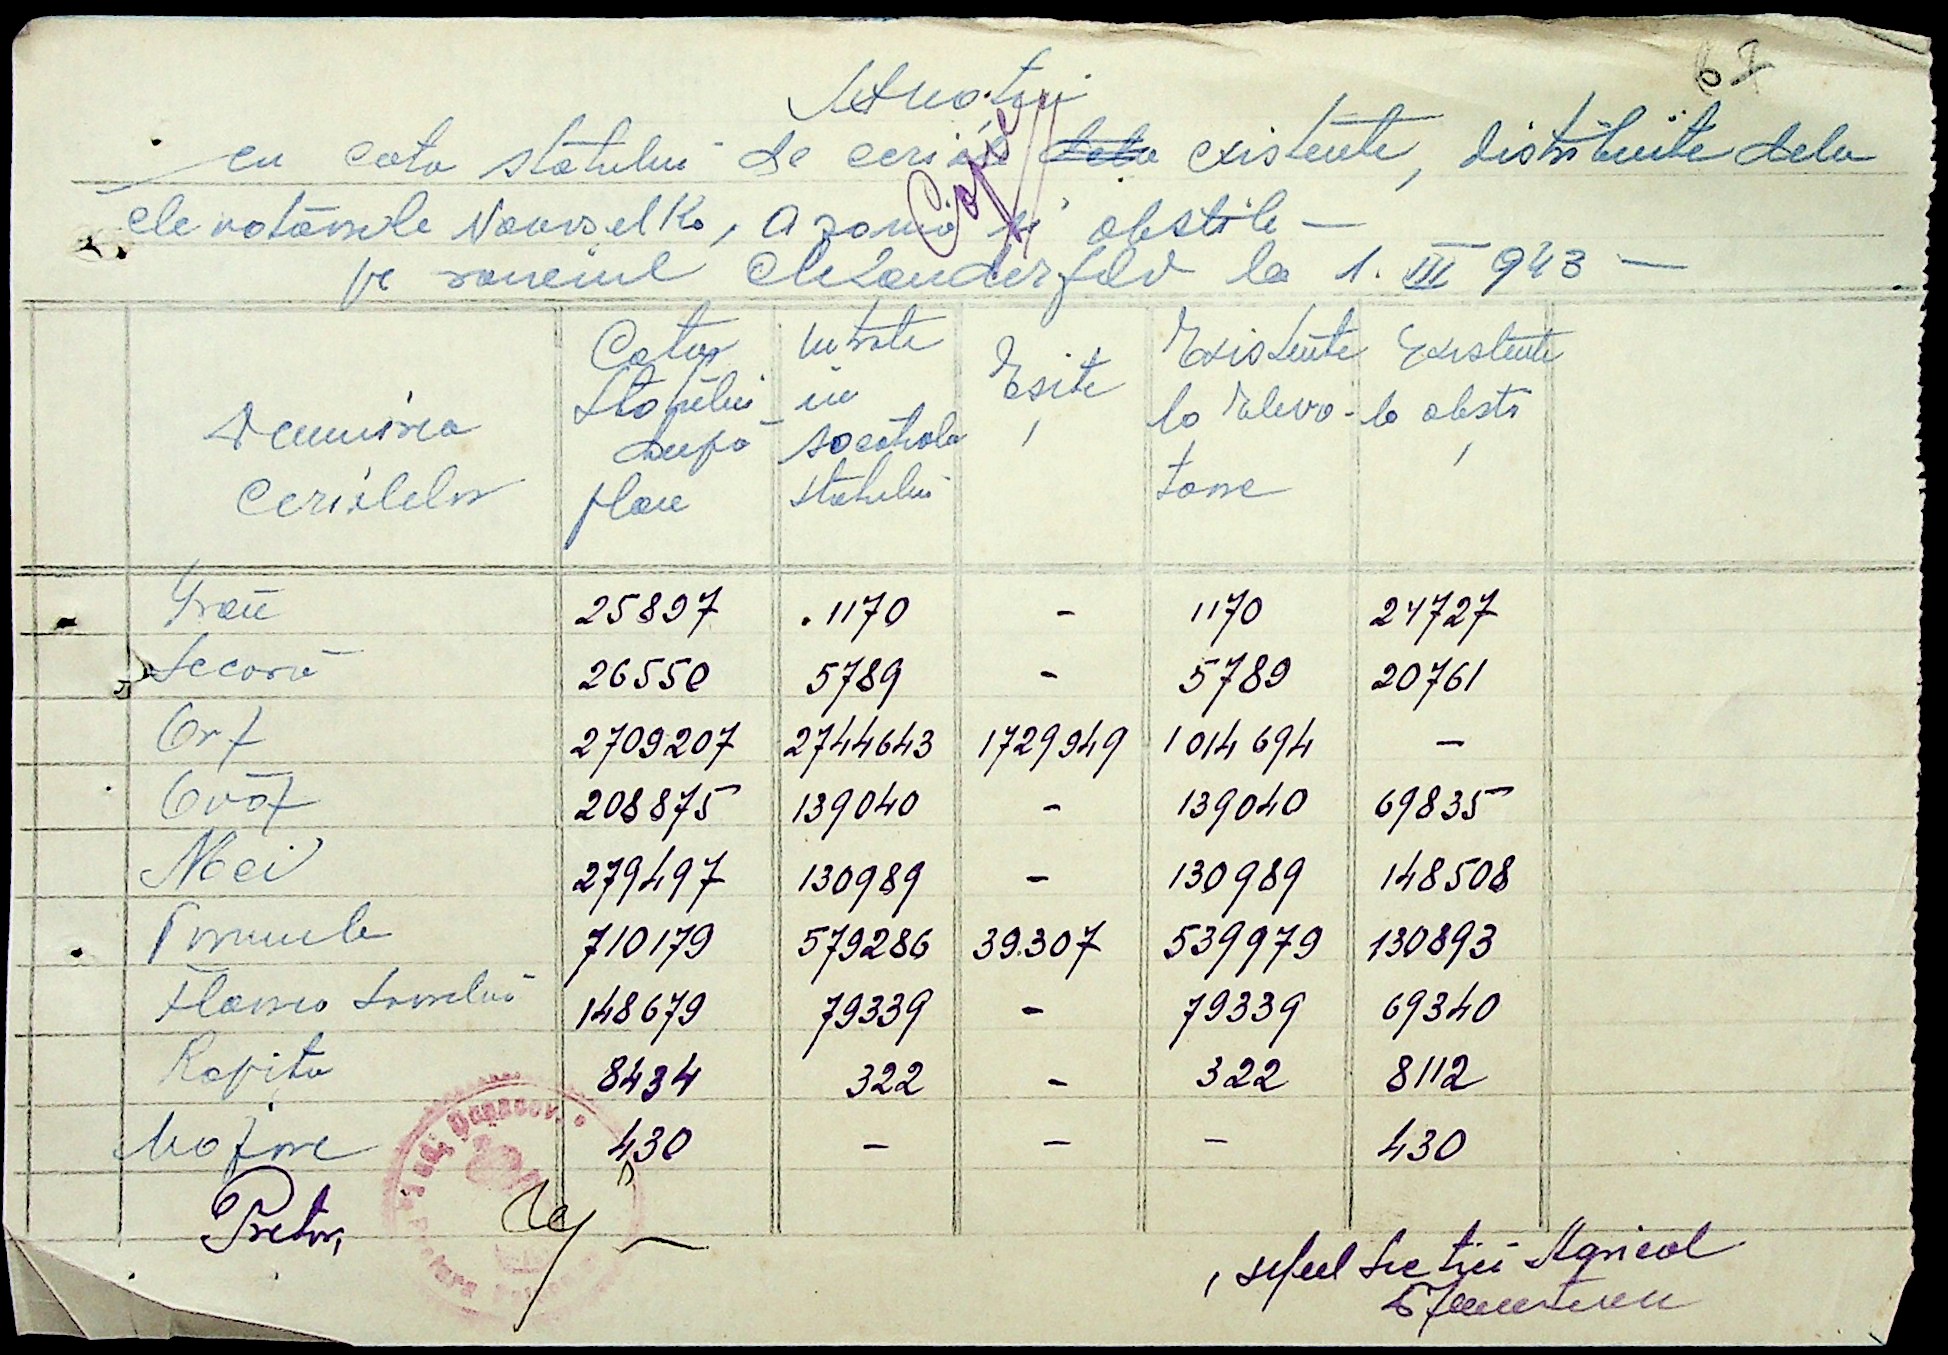 67
Situația
cu cota statului de ceriale existente, distribuite dela
elevatoarele Novoselko, Arsova și obștile —
pe raionul Alexanderfeld la 1. III 943 —
Copie
Denumirea
Cerialelor
Cota
Statului
după
plan
Intrate
în
socoteala
statului
Esite
Existente
la Eleva-
toare
Existente
la obști
Grâu 25897 1170 - 1170 24727
Secară 26550 5789 - 5789 20761
Orz 2709207 2744643 1729949 1014694 -
Ovăz 208875 139040 - 139040 69835
Mei 279497 130989 - 130989 148508
Porumb 710179 579286 39.307 539979 130893
Floarea Soarelui 148679 79339 - 79339 69340
Rapița 8434 322 - 322 8112
Mazăre 430 - - - 430
Pretor,
Șeful Secției Agricol